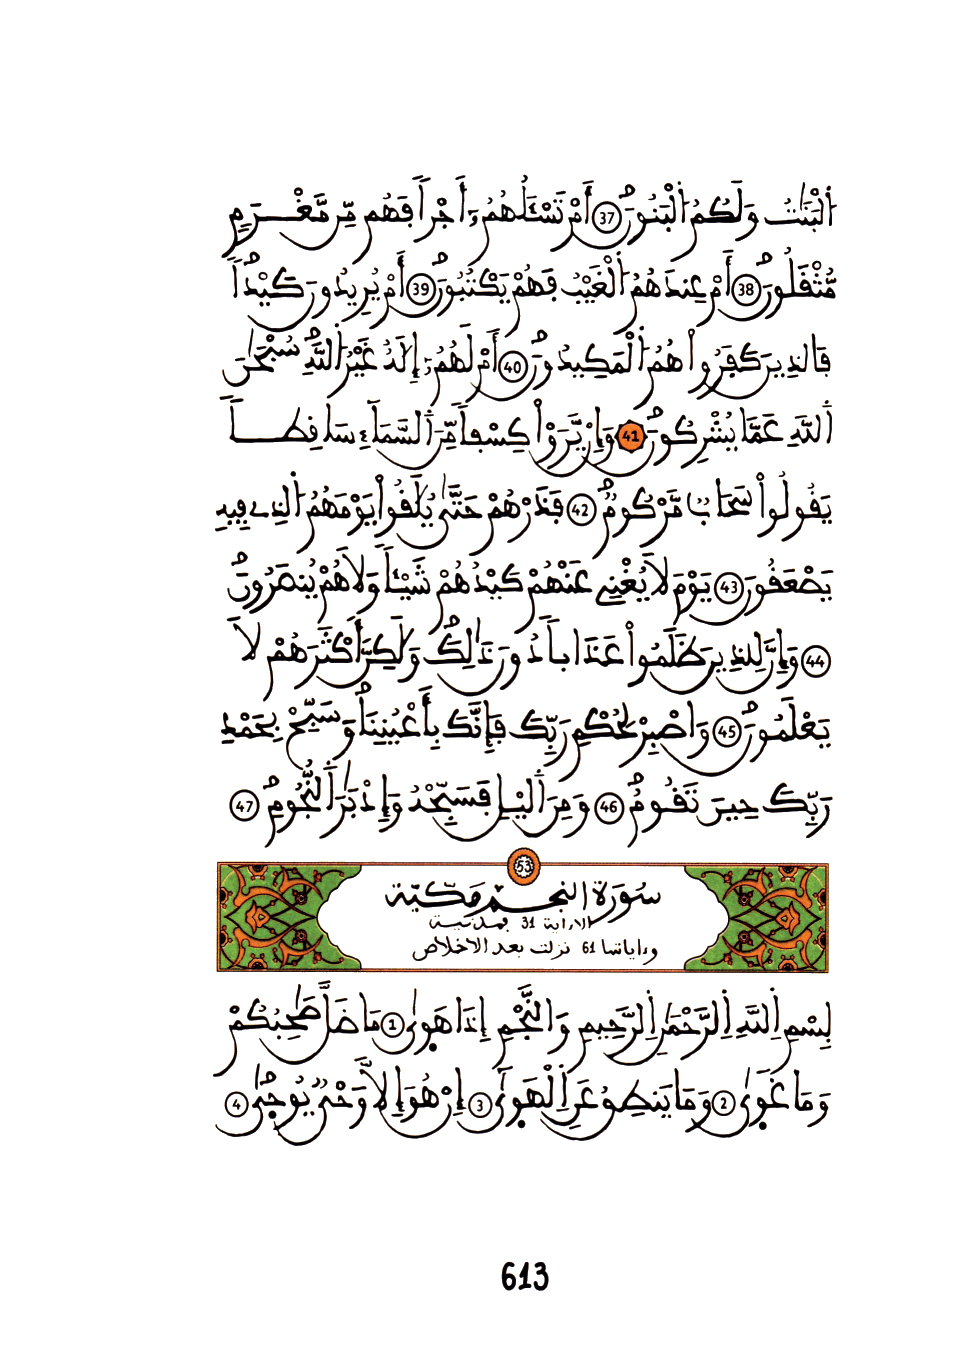 اَ۬لْبَنَٰتُ وَلَكُمُ اُ۬لْبَنُونَۖ 37 أَمْ تَسْـَٔلُهُمُۥٓ أَجْراٗ فَهُم مِّن مَّغْرَمٖ
مُّثْقَلُونَۖ 38 أَمْ عِندَهُمُ اُ۬لْغَيْبُ فَهُمْ يَكْتُبُونَۖ 39 أَمْ يُرِيدُونَ كَيْداٗ
فَالذِينَ كَفَرُواْ هُمُ اُ۬لْمَكِيدُونَۖ 40 أَمْ لَهُمُۥٓ إِلَٰهٌ غَيْرُ اُ۬للَّهِۖ سُبْحَٰنَ
اَ۬للَّهِ عَمَّا يُشْرِكُونَۖ 41 وَإِنْ يَّرَوْاْ كِسْفاٗ مِّنَ اَ۬لسَّمَآءِ سَاقِطاٗ
يَقُولُواْ سَحَابٞ مَّرْكُومٞۖ 42 فَذَرْهُمْ حَتَّيٰ يُلَٰقُواْ يَوْمَهُمُ اُ۬لذِے فِيهِ
يَصْعَقُونَۖ 43 يَوْمَ لَا يُغْنِے عَنْهُمْ كَيْدُهُمْ شَيْـٔاٗ وَلَا هُمْ يُنصَرُونَۖ
44 وَإِنَّ لِلذِينَ ظَلَمُواْ عَذَاباٗ دُونَ ذَٰلِكَۖ وَلَٰكِنَّ أَكْثَرَهُمْ لَا
يَعْلَمُونَۖ 45 وَاصْبِرْ لِحُكْمِ رَبِّكَ فَإِنَّكَ بِأَعْيُنِنَاۖ وَسَبِّحْ بِحَمْدِ
رَبِّكَ حِينَ تَقُومُۖ 46 وَمِنَ اَ۬ليْلِ فَسَبِّحْهُ وَإِدْبَٰرَ اَ۬لنُّجُومِۖ 47
53
سُورَة النجم مَكيّة
الا ءاية 31 فمدنية
وءاياتها 61 نزلت بعد الاخلاص
بِسْمِ اِ۬للَّهِ اِ۬لرَّحْمَٰنِ اِ۬لرَّحِيمِ وَالنَّجْمِ إِذَا هَوۭيٰ 1 مَا ضَلَّ صَٰحِبُكُمْ
وَمَا غَوۭيٰۖ 2 وَمَا يَنطِقُ عَنِ اِ۬لْهَوۭيٰٓ 3 إِنْ هُوَ إِلَّا وَحْيٞ يُوحۭيٰۖ 4
613